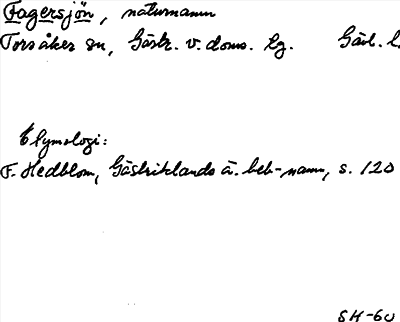 Fagersjön, naturnamn
Torsåker sn, Gästr. v. doms. hg. Gävl. l.
Etymologi:
F. Hedblom, Gästriklands ä. beb-namn, s. 120
SH-60